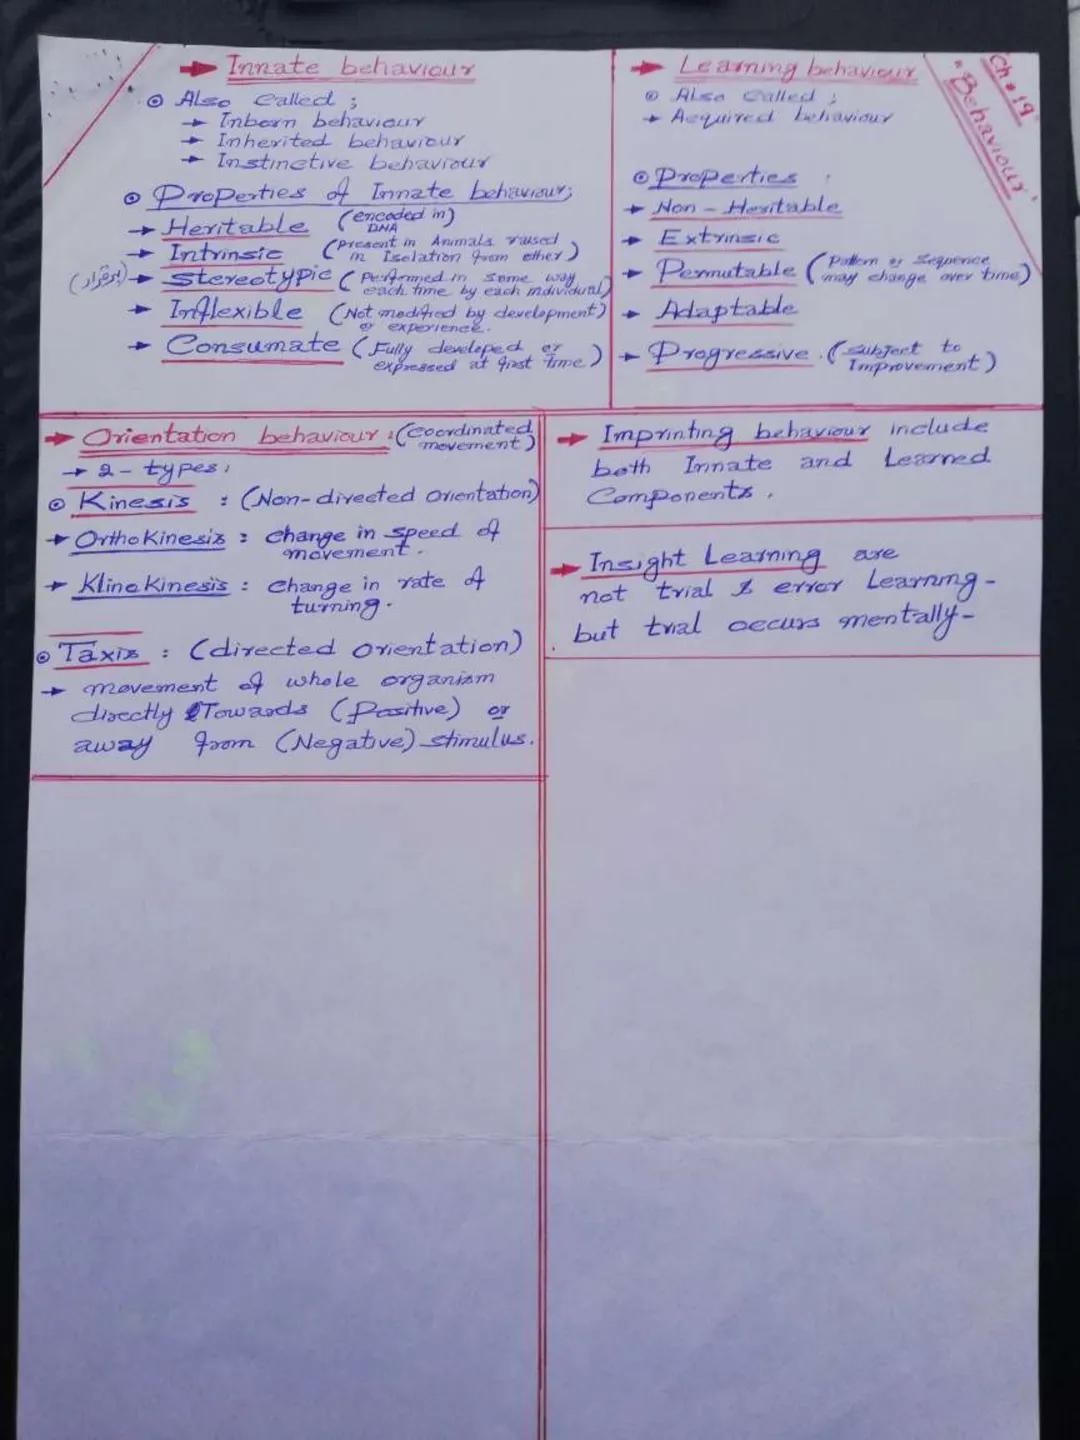 Ch # 19
"Behaviour"
→ Innate behaviour
⊙ Also Called ;
→ Inborn behaviour
→ Inherited behaviour
→ Instinctive behaviour
⊙ Properties of Innate behaviour;
→ Heritable (encoded in DNA)
→ Intrinsic (Present in Animals raised in Isolation from other)
(برقرار) → Stereotypic (Performed in same way each time by each individual)
→ Inflexible (Not modified by development or experience.
→ Consumate (Fully developed or expressed at first time)
→ Learning behaviour
⊙ Also Called ;
→ Acquired behaviour
⊙ Properties :
→ Non-Heritable
→ Extrinsic
→ Permutable (Pattern or Sequence may change over time)
→ Adaptable
→ Progressive. (subject to Improvement)
→ Orientation behaviour : (coordinated movement)
→ 2-types,
⊙ Kinesis : (Non-directed Orientation)
→ OrthoKinesis : change in speed of movement.
→ KlinoKinesis : change in rate of turning.
⊙ Taxis : (directed orientation)
→ movement of whole organism
directly Towards (Positive) or
away from (Negative) stimulus.
→ Imprinting behaviour include
both Innate and Learned
Components.
→ Insight Learning are
not trial & error Learning-
but trial occurs mentally-